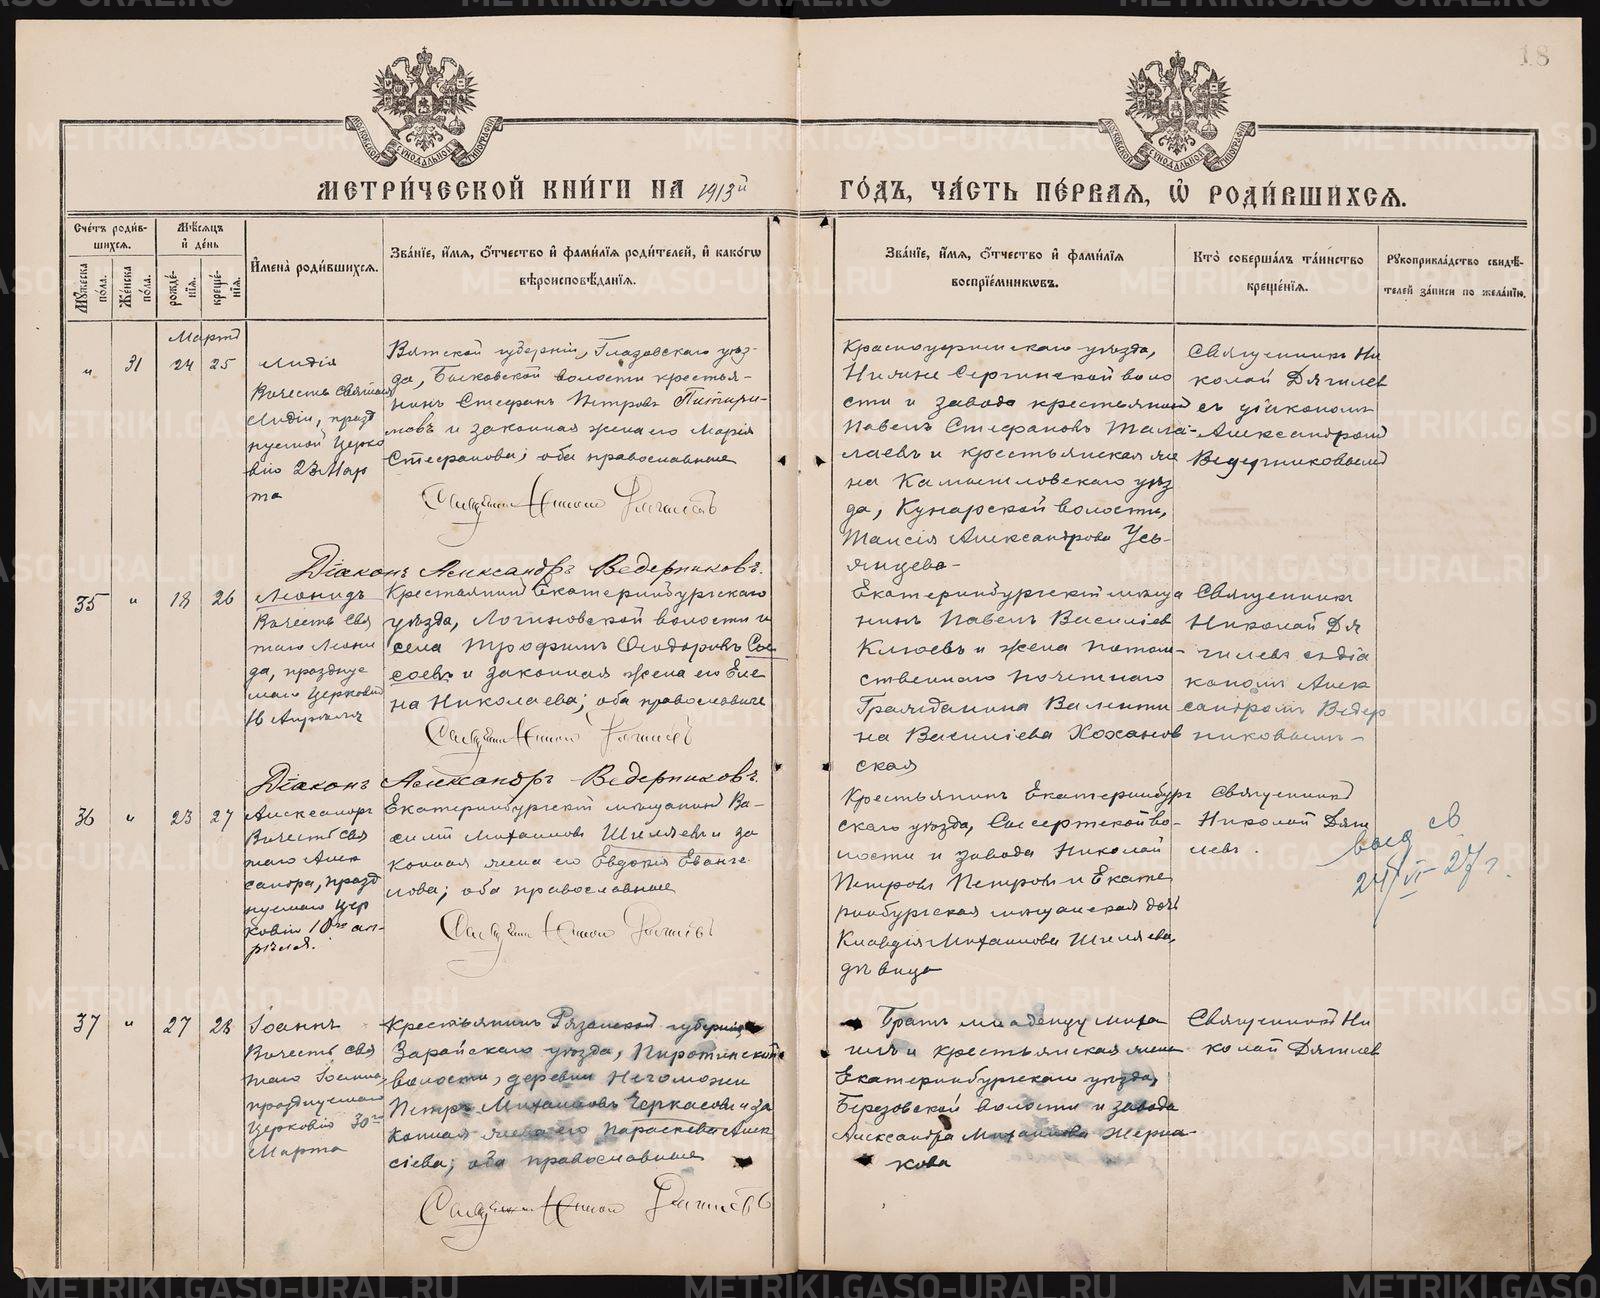 18
МОСКОВСКОЙ СѴНОДАЛЬНОЙ ТИПОГРАФІИ
МОСКОВСКОЙ СѴНОДАЛЬНОЙ ТИПОГРАФІИ
МЕТРИ́ЧЕСКОЙ КНИ́ГИ НА 1913й
ГО́ДЪ, ЧА́СТЬ ПЕ́РВАЯ, Ѡ҆ РОДИ́ВШИХСѦ.
Сче́тъ роди́в-
шихся.
Мѣ́сяцъ
и҆ де́нь
Му́жеска по́ла.
Же́нска по́ла.
рожде́-
нїя.
креще́-
нїя.
И҆мена̀ роди́вшихся.
Зва́нїе, и҆́мя, о҆́тчество и҆ фами́лїя роди́телей, и҆ како́гѡ
вѣроисповѣ́данїя.
Зва́нїе, и҆́мя, о҆́тчество и҆ фами́лїя
воспрїе́мникѡвъ.
Кто̀ соверша́лъ та́инство
креще́нїя.
Рꙋкоприкла́дство свидѣ́-
телей за́писи по жела́нїю.
Мартъ
" 31 24 25
Лидія
Въ честь святыя
Лидіи, празд
нуемой Церко
вію 23 Мар
та
Вятской губерніи, Глазовскаго уѣз-
да, волости крестья-
нинъ Стефанъ Петровъ
и законная жена его Марія
Стефанова; оба православные
Священникъ Николай Дягилевъ
Діаконъ Александръ Ведерниковъ.
Красноуфимскаго уѣзда,
Нижне Сергинской воло
сти и завода крестьянинъ
Павелъ Стефановъ Тала-
лаевъ и крестьянская же
на Камышловскаго уѣз
да, Кунарской волости,
Таисія Александрова Усь-
янцева-
Священникъ Ни
колай Дягилев
съ діакономъ
Александромъ
Ведерниковымъ
35 " 18 26
Леонидъ
Въ честь Свя
таго Леони
да, праздну
емаго Церковію
Апрѣля
Крестьянинъ Екатеринбургскаго
уѣзда, Логиновской волости и
села Трофимъ Ѳеодоровъ Сы-
соевъ и законная жена его Еле
на Николаева; оба православные
Священникъ Николай Дягилевъ
Діаконъ Александръ Ведерниковъ.
Екатеринбургскій мѣща
нинъ Павелъ Василіев
Клюевъ и жена потом-
ственнаго почетнаго
Гражданина Валенти
на Василіева Хоханов
ская
Священникъ
Николай Дя
гилевъ съ діа
кономъ Алек
сандромъ Ведер
никовымъ-
36 " 23 27
Александръ
Въ честь Свя
таго Алек
сандра, празд
нуемаго Цер
ковію 10го ап-
рѣля.
Екатеринбургскій мѣщанинъ Ва-
силій Михаиловъ Шиляевъ и за
конная жена его Евдокія Еванге
лова; оба православные
Священникъ Николай Дягилевъ
Крестьянинъ Екатеринбург
скаго уѣзда, Сысертской во-
лости и завода Николай
Петровъ Петровъ и Екате
ринбургская мѣщанская дочь
Клавдія Михаилова Шиляева,
дѣвица
Священникъ
Николай Дяги
левъ.
выд св
24/VI- 27 г.
37 " 27 28
Іоаннъ
Въ честь Свя
таго Іоанна,
празднуемаго
Церковію 30го
Марта
Крестьянинъ Рязанской губерніи,
Зарайскаго уѣзда,
волости, деревни Негоможи
Петръ Михаиловъ Черкасовъ и за
конная жена его Параскева Алек
сіева; оба православные
Священникъ Николай Дягилевъ
Братъ младенцу Миха
илъ и крестьянская жена
Екатеринбургскаго уѣзда,
Березовской волости и завода
Александра Михаилова Жерна-
кова
Священникъ Ни
колай Дягилев
METRIKI.GASO-URAL.RU